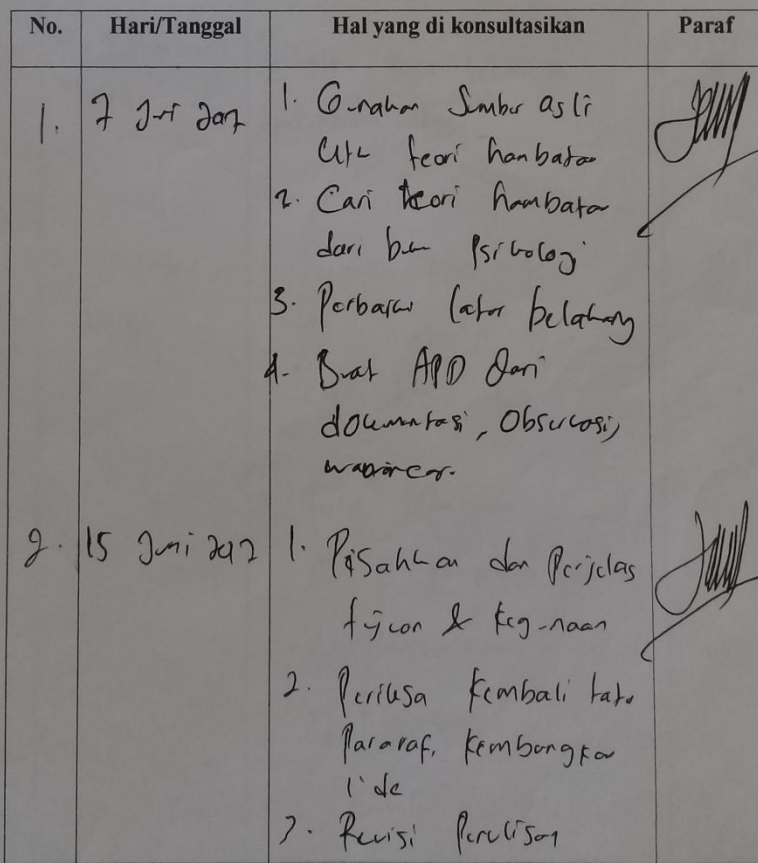 No. Hari/Tanggal Hal yang di konsultasikan Paraf
1. 7 Juni 1. Gunakan Sumber asli
teori hambatan
2. Cari teori hambatan
dari buku Psikologi
3. Perbarui latar belakang
4. Buat APD dari
dokumentasi, Observasi,
wawancara.
2. 15 Juni 1. Pisahkan dan Perjelas
tujuan & kegunaan
2. Periksa kembali tata
Paragraf, kembangkan
ide
3. Revisi Penulisan